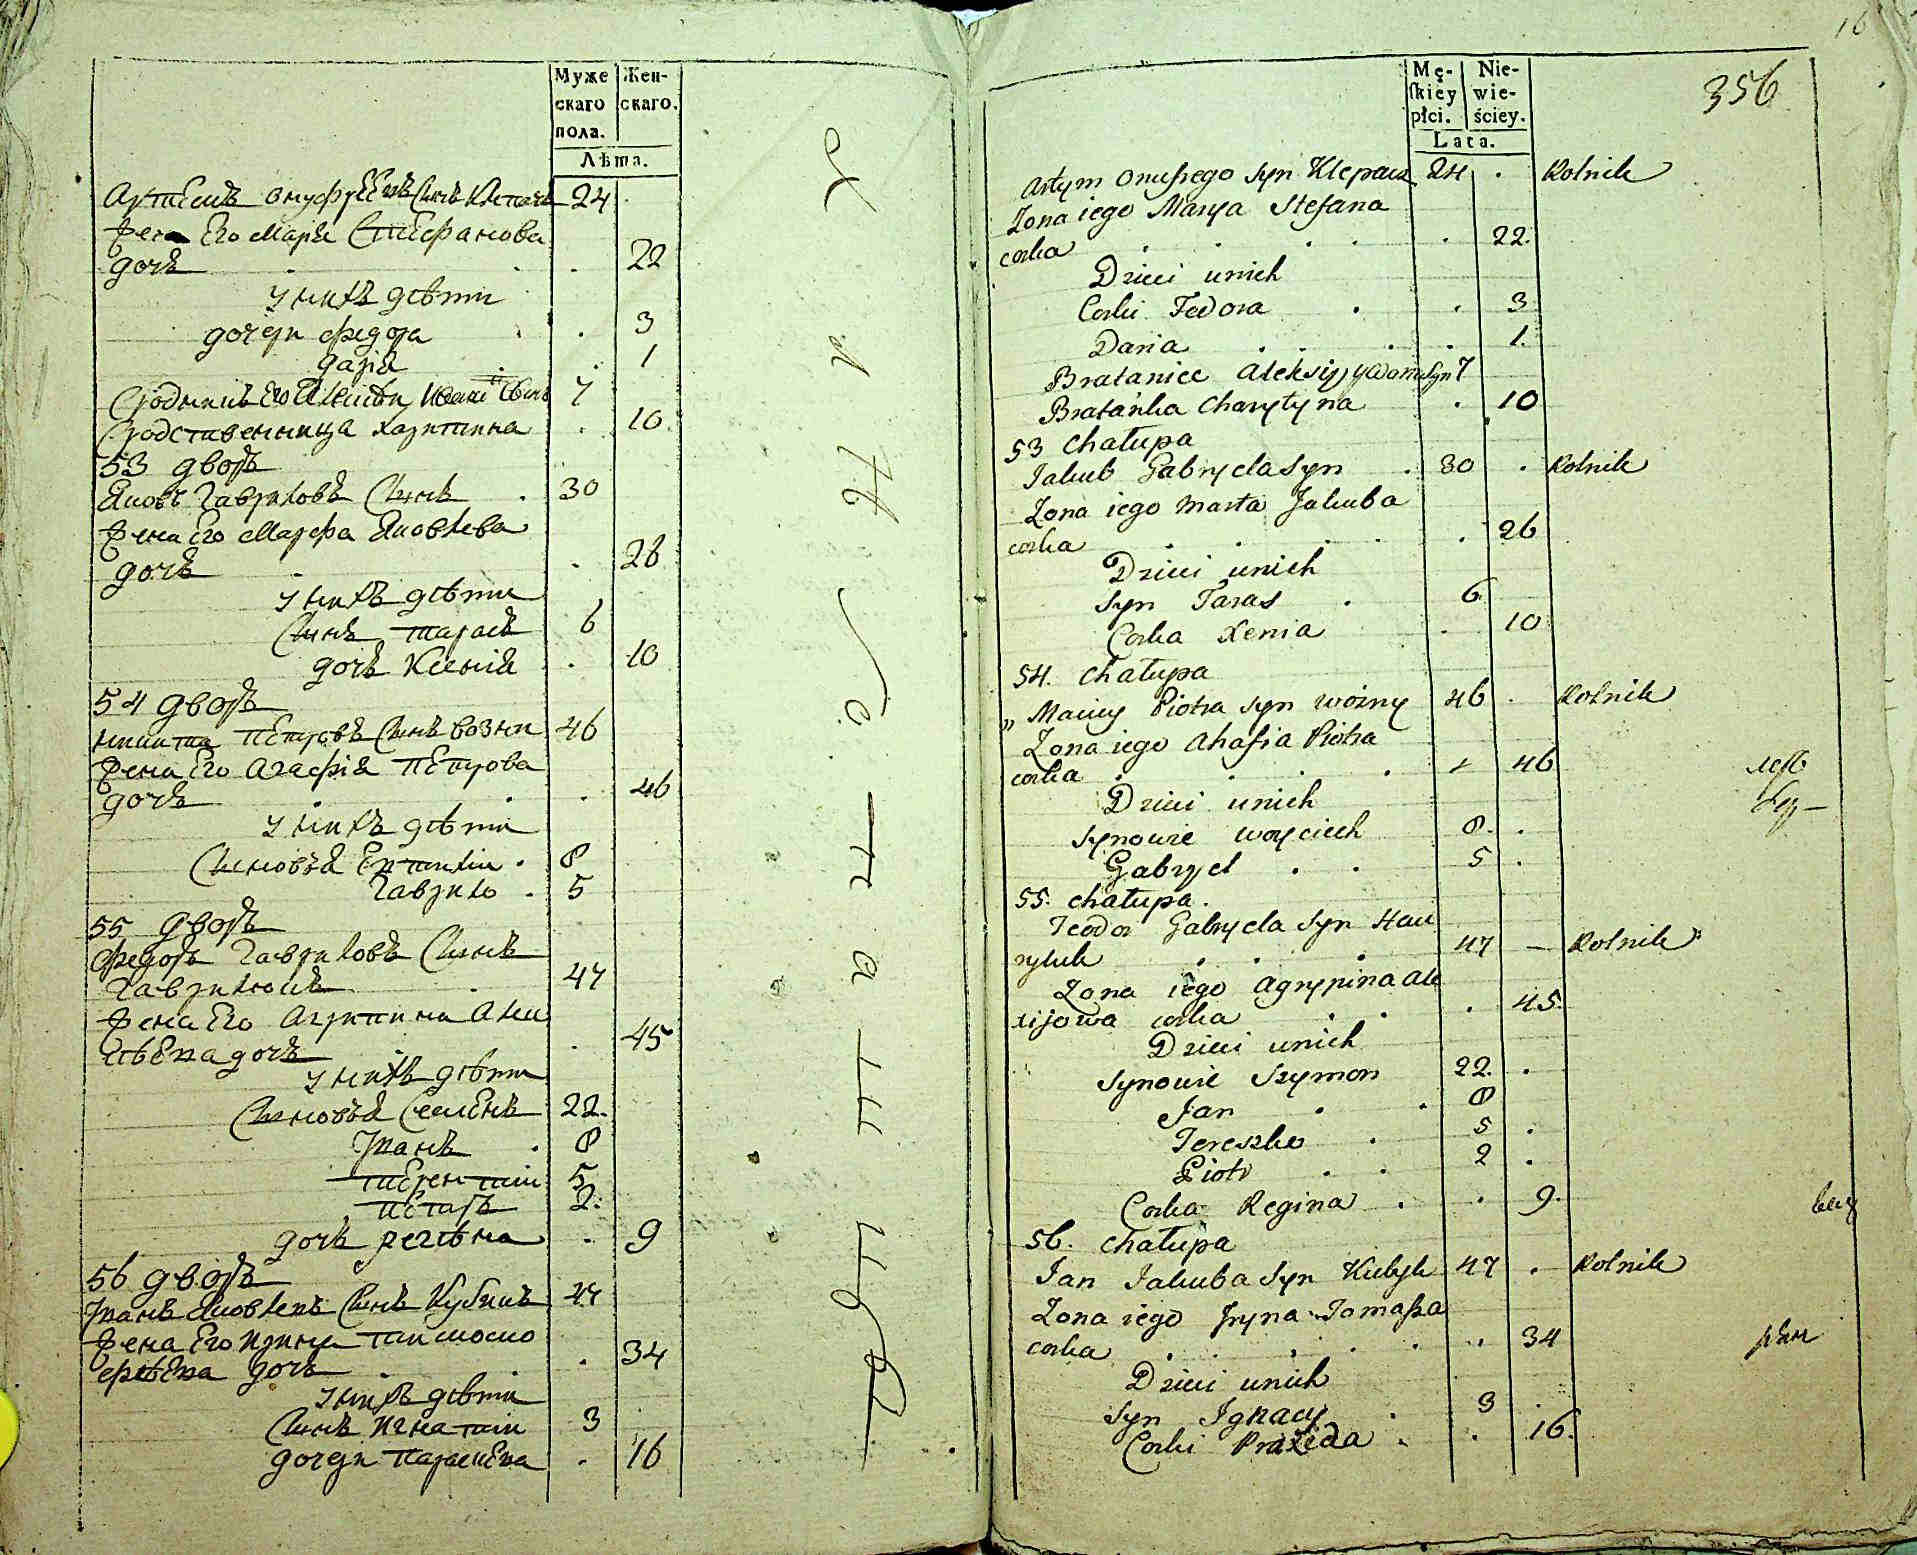 Муже Жен-
скаго скаго.
пола.
Лѣта.
Артіемъ Онуфріевъ Синъ Клепачъ 24
жена Его Марія Стефанова
дочь 22
у нихъ дѣти
дочери Федора 3
Дарія 1
Сродникъ Его 7
Сродственница Харитина 10
53 дворъ
Яковъ Гавриловъ Синъ 30
жена Его Марфа Яковлева
дочь 26
у нихъ дѣти
Синъ Тарасъ 6
дочь Ксенія 10
54 дворъ
Никита Петровъ Синъ Возни 46
жена Его Агафія Петрова
дочь 46
у нихъ дѣти
Синовья 8
Гаврило 5
55 дворъ
Федоръ Гавриловъ Синъ
Гаврилюкъ 47
жена Его Агрипина Алек
сѣева дочь 45
у нихъ дѣти
Синовья Семенъ 22.
Иванъ 8
Терентіи 5
Петръ 2.
дочь Регѣна 9
56 дворъ
Иванъ Яковлевъ Синъ Кубикъ 47
жена Его Ирина Тимо
фѣева дочь 34
у нихъ дѣти
Синъ Игнатіи 3
дочери Параскева 16
16
356
Mę- Nie-
ſkiey wie-
płci. ściey.
Lata.
Artym Onufrego Syn Klepacz 24 . Rolnik
Zona iego Marya Stefana
corka 22.
Dzieci unich
Corki Fedora 3
Daria 1.
Bratanice Alexiy Syn 7
Bratanka Charytyna 10
53 Chałupa
Jakub Gabryela Syn 30 . Rolnik
Zona iego Marta Jakuba
corka 26
Dzieci unich
Syn Taras 6
Corka Xenia 10
54. Chałupa
" Maciey Piotra Syn Wozny 46 . Rolnik
Zona iego Ahafia Piotra
corka 46
Dzieci unich
Synowie Woyciech 8.
Gabryel 5
55. Chałupa.
Teodor Gabryela Syn Haw
ryluk 47 — Rolnik
Zona iego Agrypina Ale
xijowa corka 45.
Dzieci unich
Synowie Szymon 22.
Jan 8
Tereszko 5
Piotr 2
Corka Regina 9.
56. Chałupa
Jan Jakuba Syn Kubyk 47 . Rolnik
Zona iego Jryna Tomasza
corka 34
Dzieci unich
Syn Ignacy 3
Corki Praxeda 16.